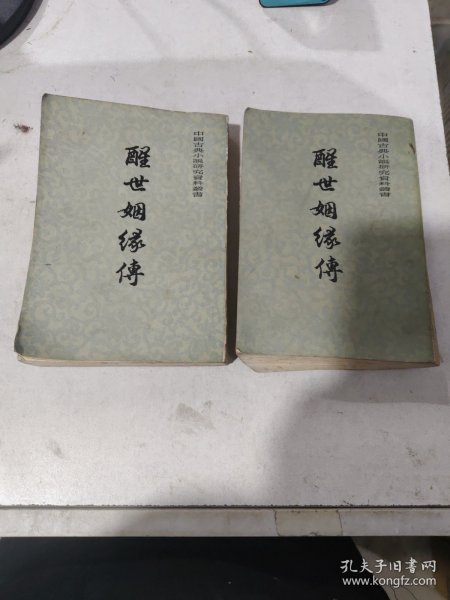 中國古典小說研究資料叢書
醒世姻缘傳
中國古典小說研究資料叢書
醒世姻缘傳
孔夫子旧书网
www.kongfz.com